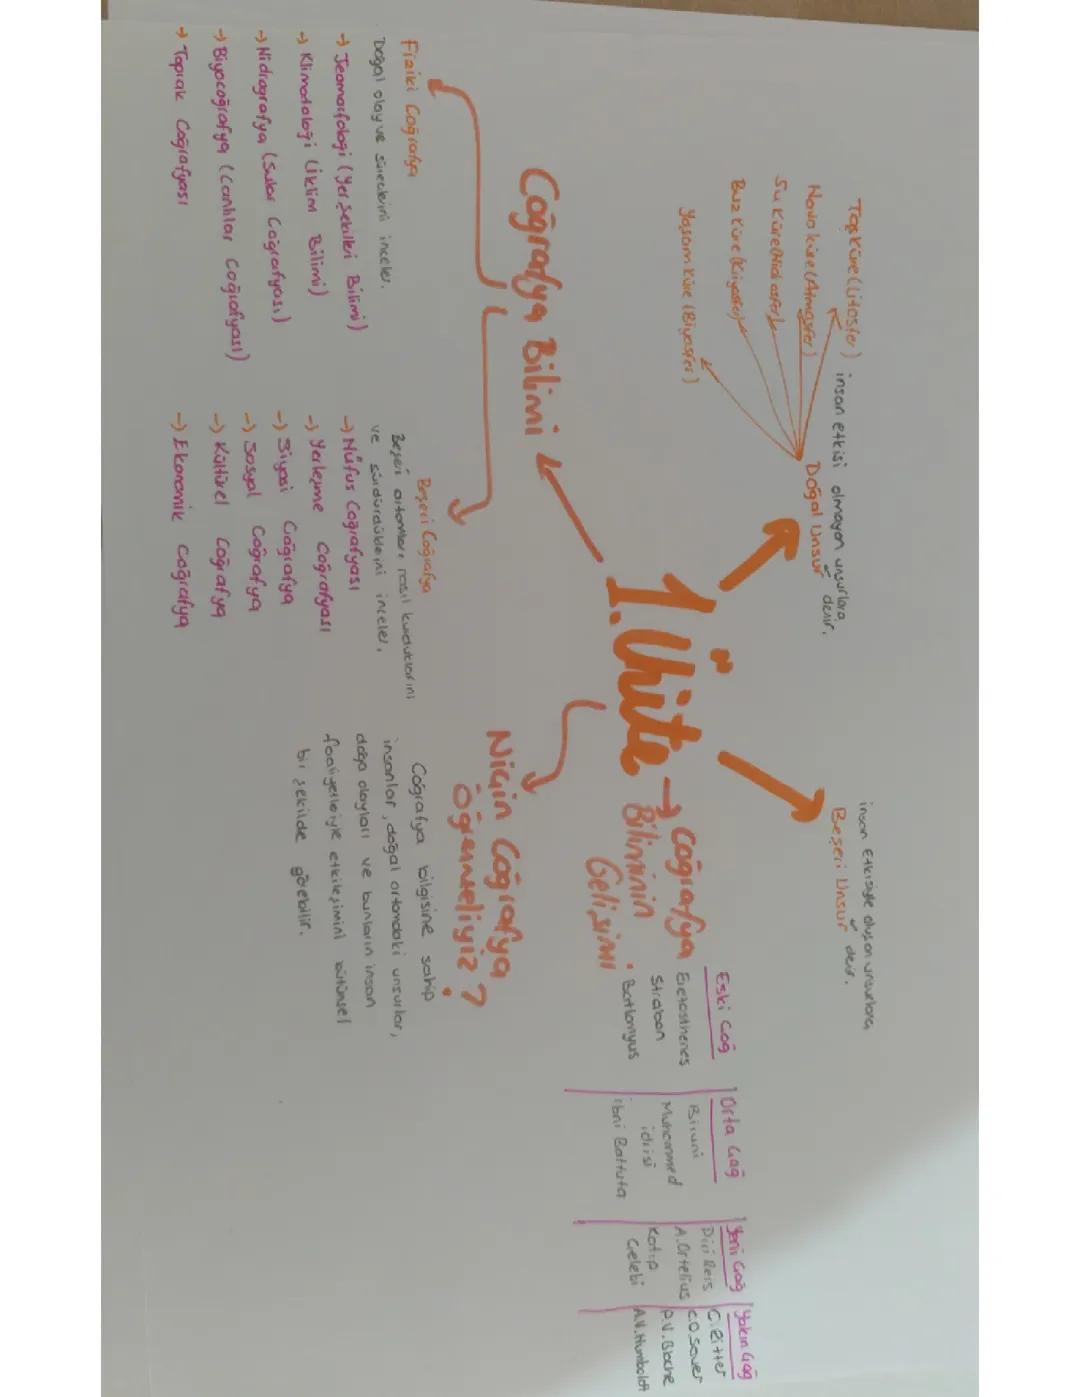 1. Ünite
Doğal Unsur
insan etkisi olmayan unsurlara
denir.
Taşküre (Litosfer)
Hava küre (Atmosfer)
Su küre (Hidrosfer)
Buz küre (Kriyosfer)
Yaşam küre (Biyosfer)
Beşeri Unsur
insan Etkisiyle oluşan unsurlara
denir.
Coğrafya Bilimi
Fiziki Coğrafya
Doğal olay ve süreçlerini inceler.
→ Jeomorfoloji (Yer şekilleri Bilimi)
→ Klimatoloji (iklim Bilimi)
→ Hidrografya (Sular Coğrafyası)
→ Biyocoğrafya (Canlılar Coğrafyası)
→ Toprak Coğrafyası
Beşeri Coğrafya
Beşeri ortamları nasıl kurduklarını
ve sürdürdüklerini inceler.
→ Nüfus Coğrafyası
→ Yerleşme Coğrafyası
→ Siyasi Coğrafya
→ Sosyal Coğrafya
→ Kültürel Coğrafya
→ Ekonomik Coğrafya
Niçin Coğrafya
öğrenmeliyiz?
Coğrafya bilgisine sahip
insanlar, doğal ortamdaki unsurlar,
doğa olayları ve bunların insan
faaliyetleriyle etkileşimini bütünsel
bir şekilde görebilir.
→ Coğrafya
Biliminin
Gelişimi
Eski Çağ
Eratosthenes
Strabon
• Batlamyus
Orta Çağ
Biruni
Muhammed
idrisi
ibni Battuta
Yeni Çağ
Piri Reis
A. Ortelius
Katip
Çelebi
Yakın Çağ
C. Ritter
C.O. Sauer
P.V. Blache
A.V. Humboldt